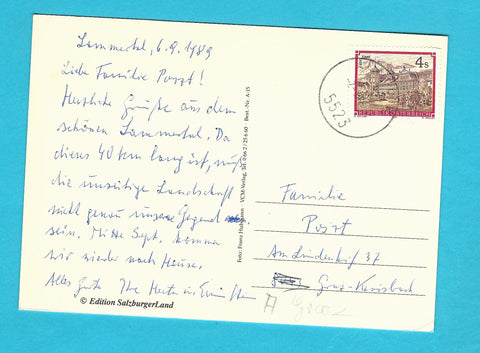 Lammertal, 6.9.1989
Liebe Familie Poszt!
Herzliche Grüße aus dem
schönen Lammertal. Da
dieses 40 km lang ist, muß
die umseitige Landschaft
nicht genau unsere Gegend
sein. Mitte Sept. kommen
wir wieder nach Hause.
Alles Gute Ihre
© Edition SalzburgerLand
Foto: Franz · VCM-Verlag, Tel. 0 66 2 / 25 6 60 Best.-Nr. A-15
4 S
REPUBLIK ÖSTERREICH
5523
Familie
Poszt
Am Lindenhof 37
Graz-
A